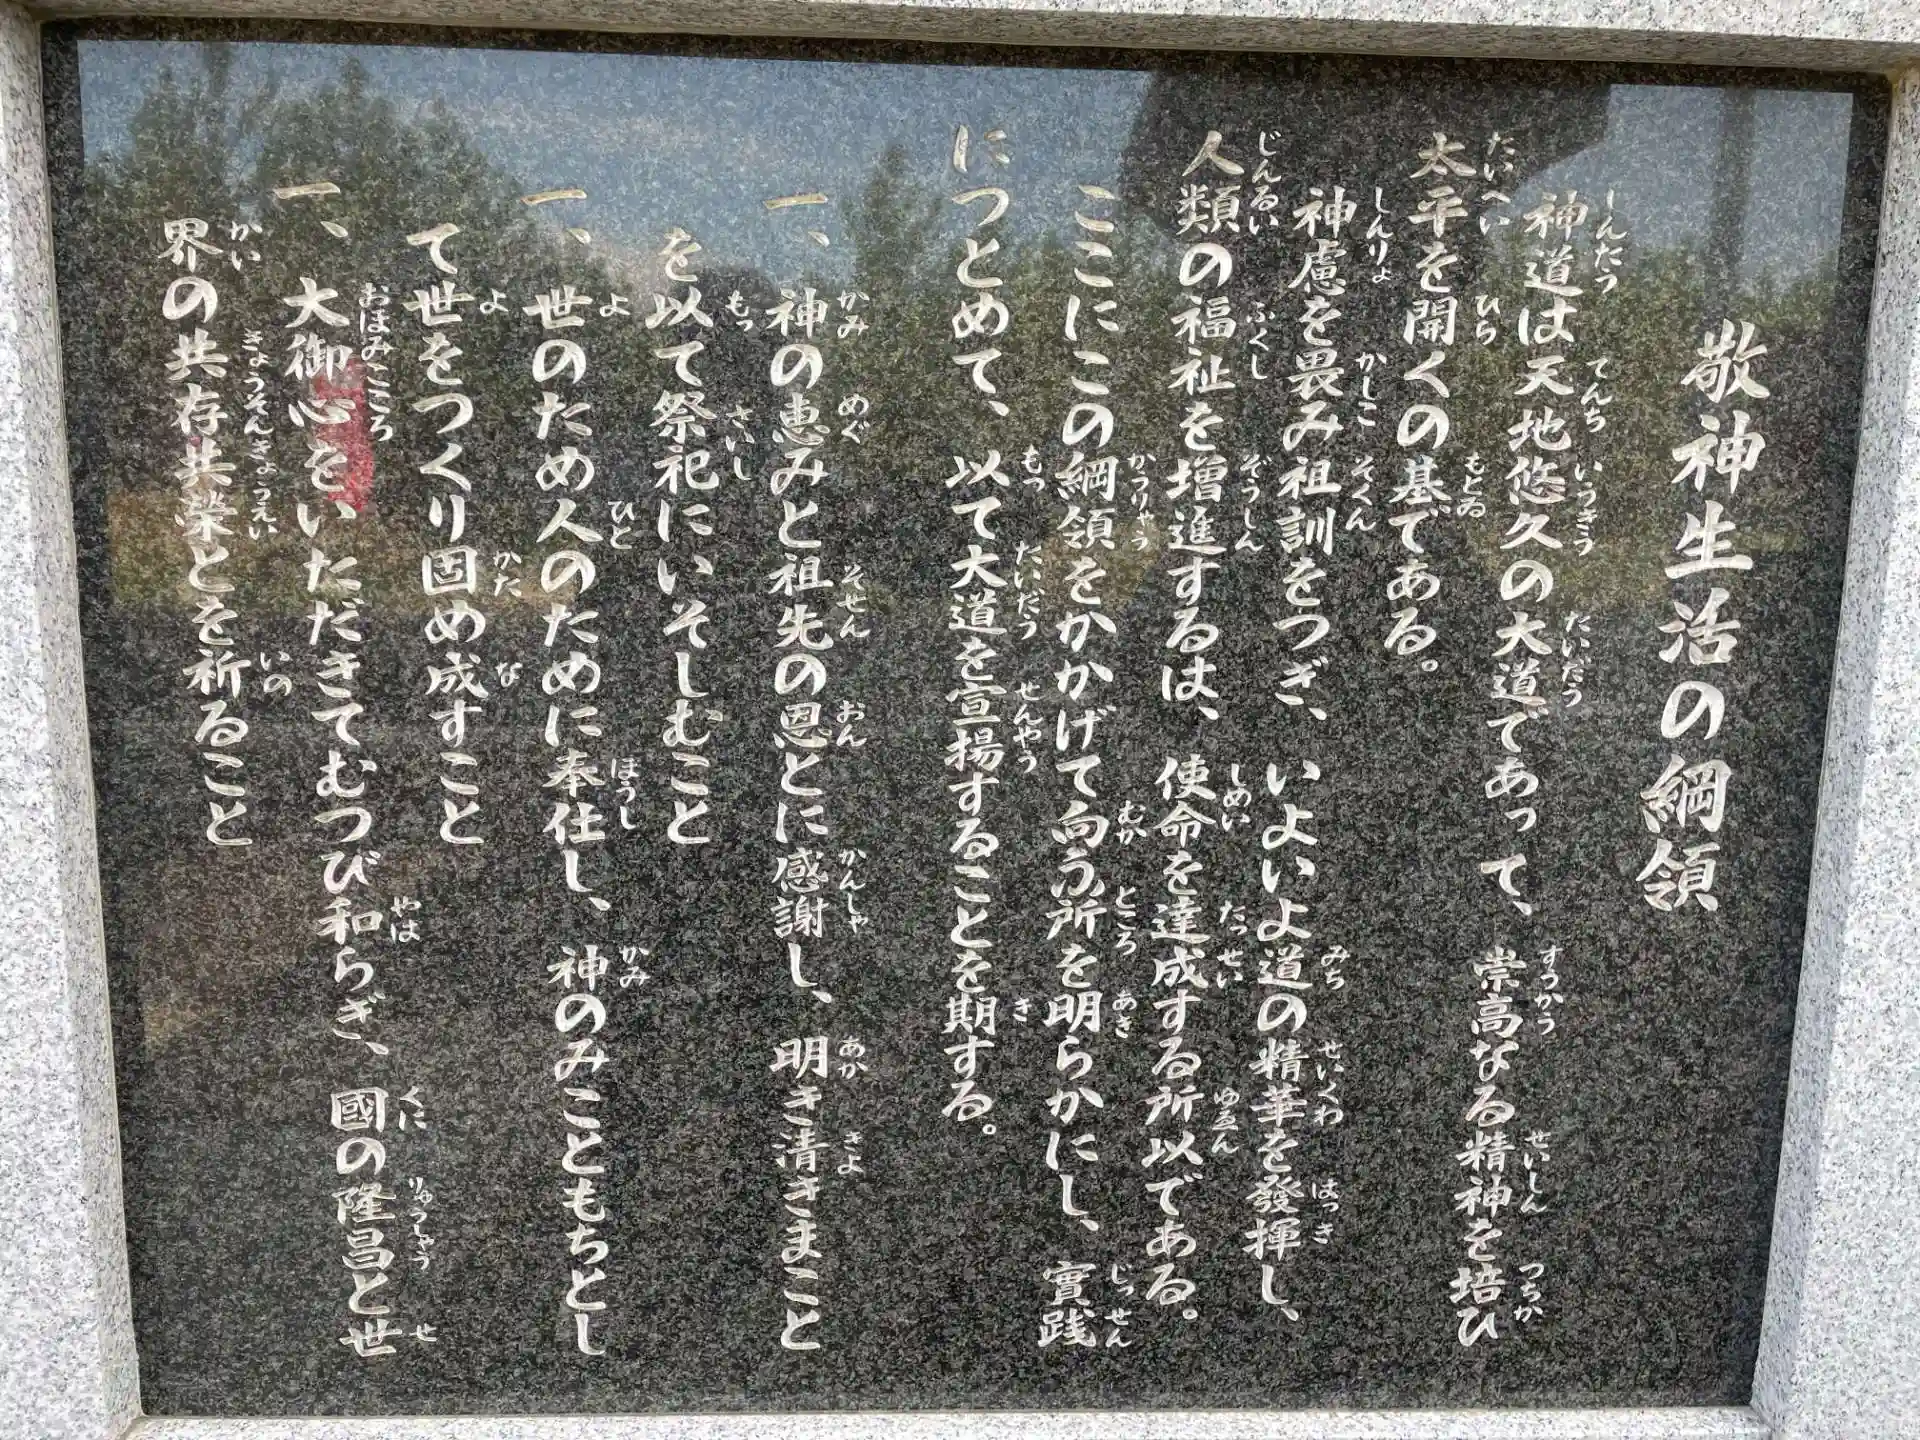 敬神生活の綱領
神道は天地悠久の大道であって、崇高なる精神を培ひ
太平を開くの基である。
神慮を畏み祖訓をつぎ、いよいよ道の精華を發揮し、
人類の福祉を増進するは、使命を達成する所以である。
ここにこの綱領をかかげて向ふ所を明らかにし、實践
につとめて、以て大道を宣揚することを期する。
一、神の恵みと祖先の恩とに感謝し、明き清きまこと
を以て祭祀にいそしむこと
一、世のため人のために奉仕し、神のみこともちとし
て世をつくり固め成すこと
一、大御心をいただきてむつび和らぎ、國の隆昌と世
界の共存共榮とを祈ること